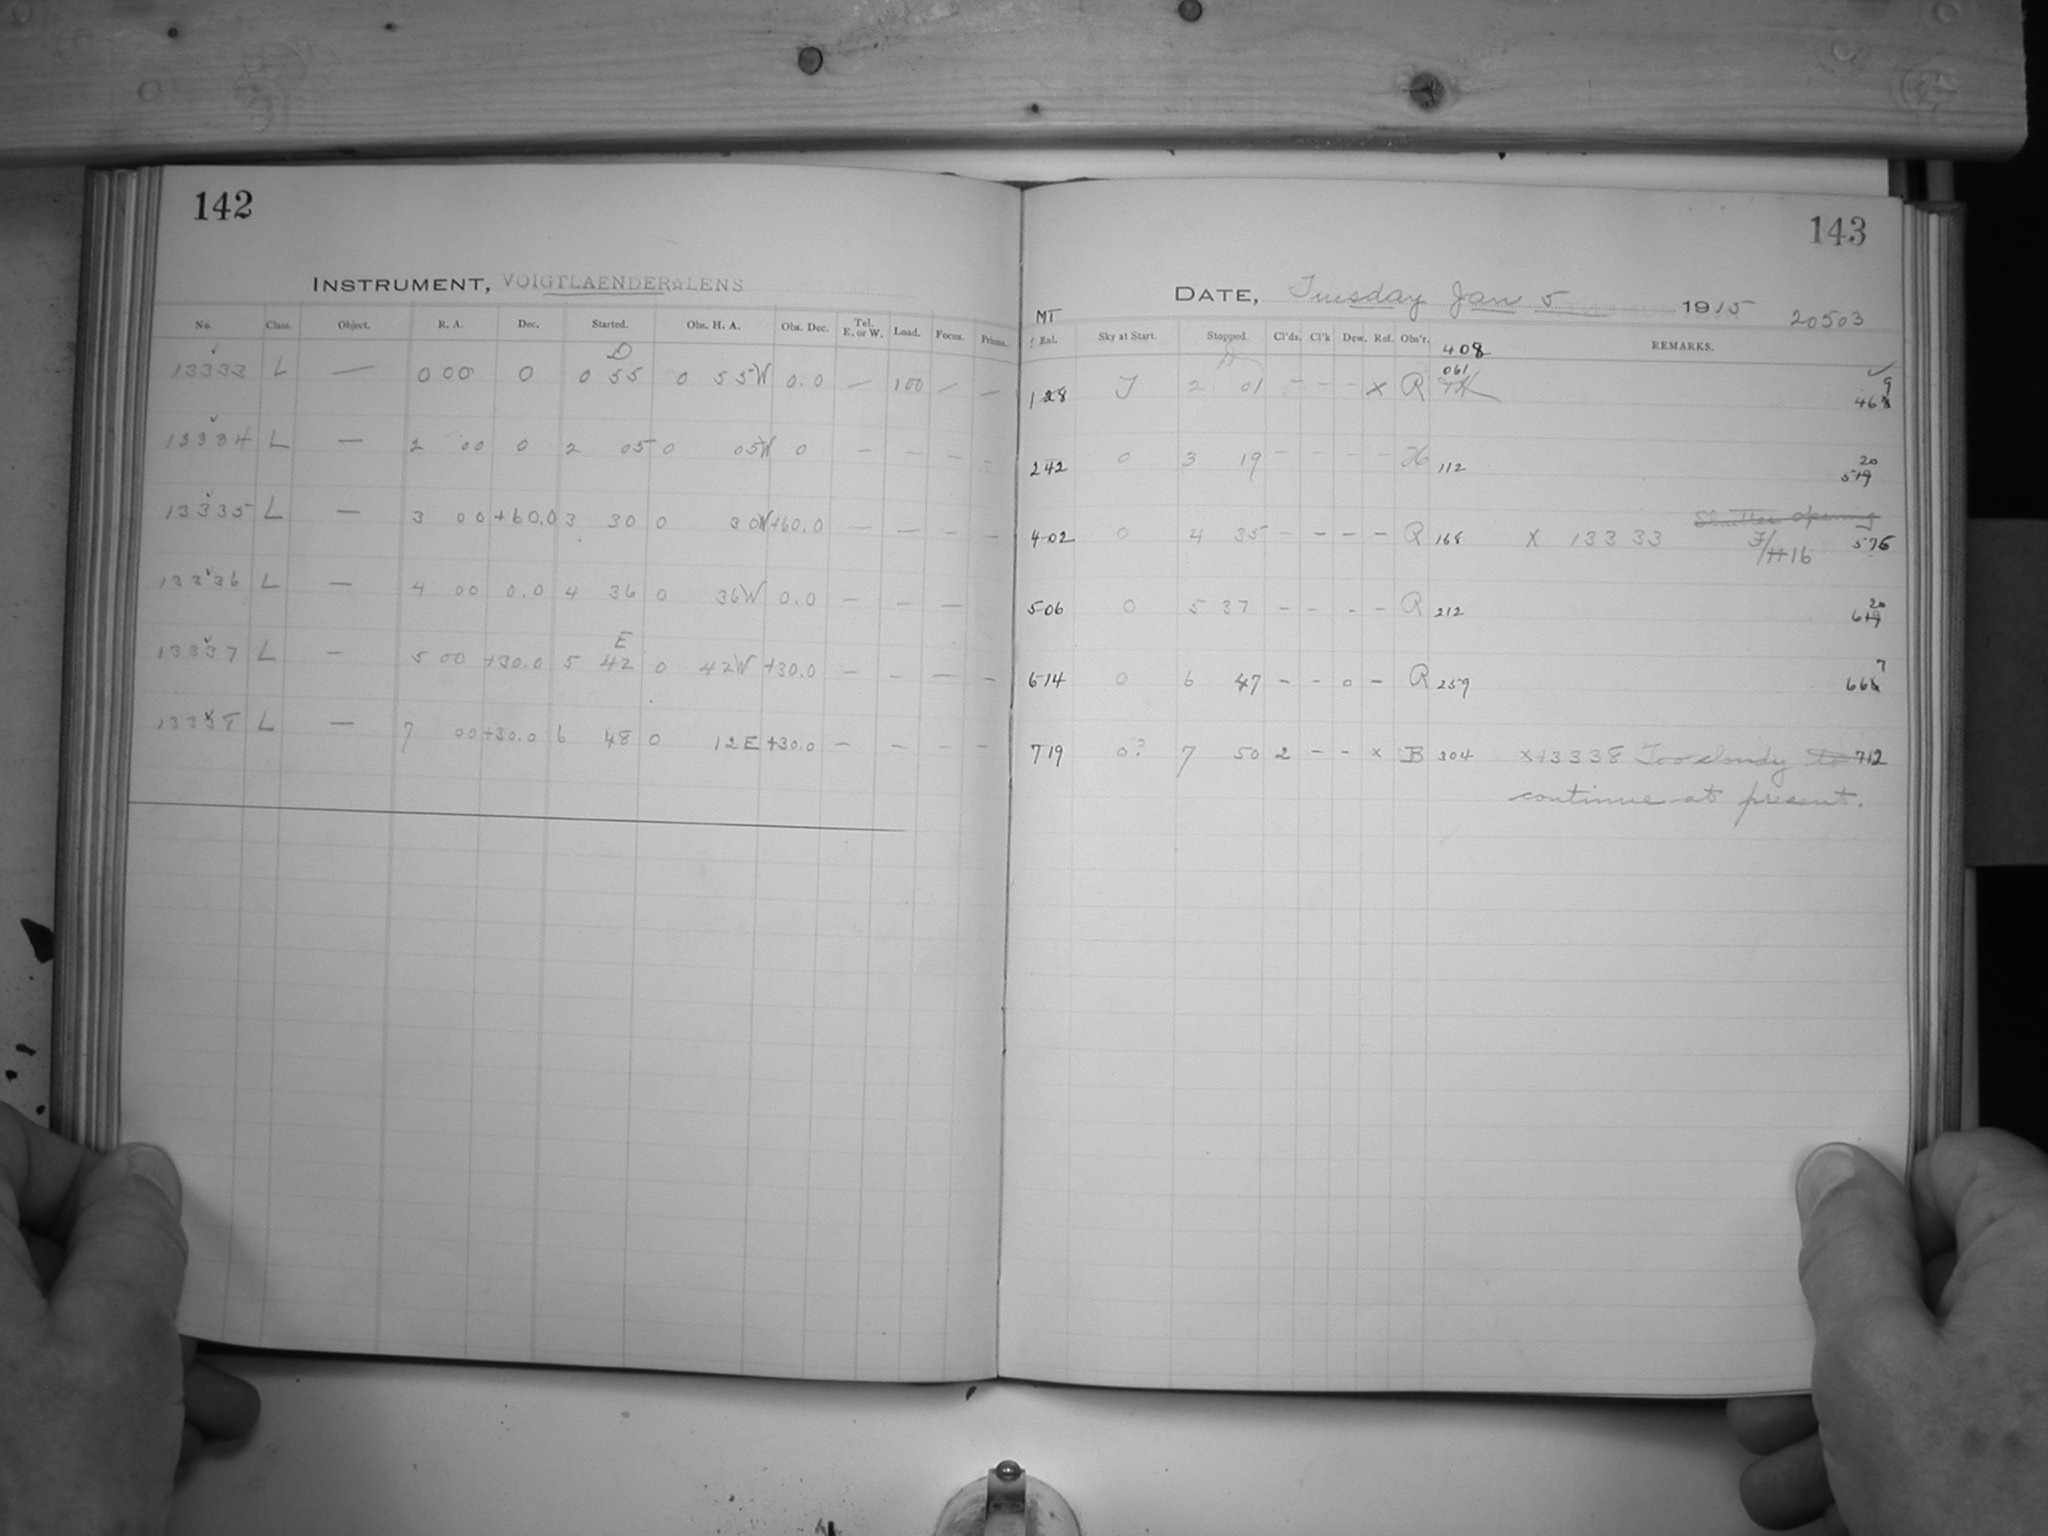 142
INSTRUMENT, VOIGTLAENDER LENS
No. Class. Object. R. A. Dec. Started. Obs. H. A. Obs. Dec. Tel. E. or W. Load. Focus. Prisms.
D
13333 L — 0 00 0 0 55 0 55W 0.0 — 100 — —
13334 L — 2 00 0 2 05 0 05W 0 — — — —
13335 L — 3 00 +60.0 3 30 0 30W +60.0 — — — —
13336 L — 4 00 0.0 4 36 0 36W 0.0 — — —
E
13337 L — 5 00 +30.0 5 42 0 42W +30.0 — — — —
13338 L — 7 00 +30.0 6 48 0 12E +30.0 — — — —
143
DATE, Tuesday Jan 5 1915 20503
MT
Sky at Start. Stopped. Cl'ds. Cl'k Dew. Ref. Obs'r. REMARKS.
408
061
128 2 01 - - - x R 9
468
242 0 3 19 - - - - H 112 20
519
Shutter opening
402 0 4 35 - - - - R 168 X 13333 F/16 576
506 0 5 37 - - - - R 212 20
619
614 0 6 47 - - 0 - R 259 7
666
719 0? 7 50 2 - - x B 304 x13338 Too cloudy to 712
continue at present.